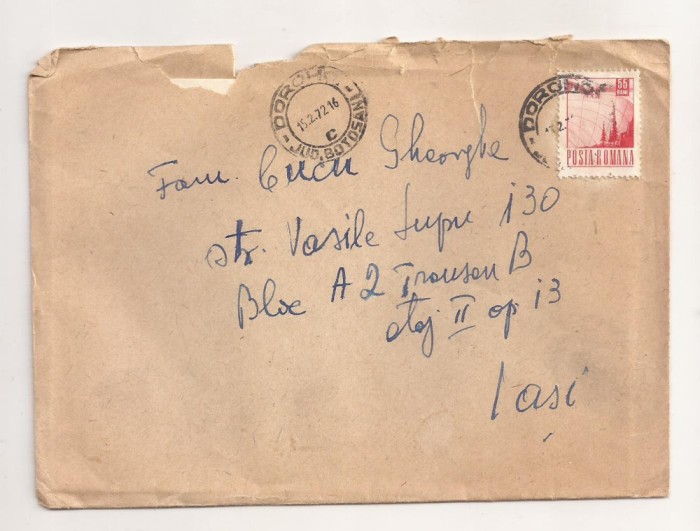 DOROHOI
15.2.72.16
C
JUD. BOTOSANI
DOROHOI
55
BANI
POSTA ROMANA
Fam. Cucu Gheorghe
str. Vasile Lupu 130
Bloc A2 Tronson B
etaj II ap 13
Iași